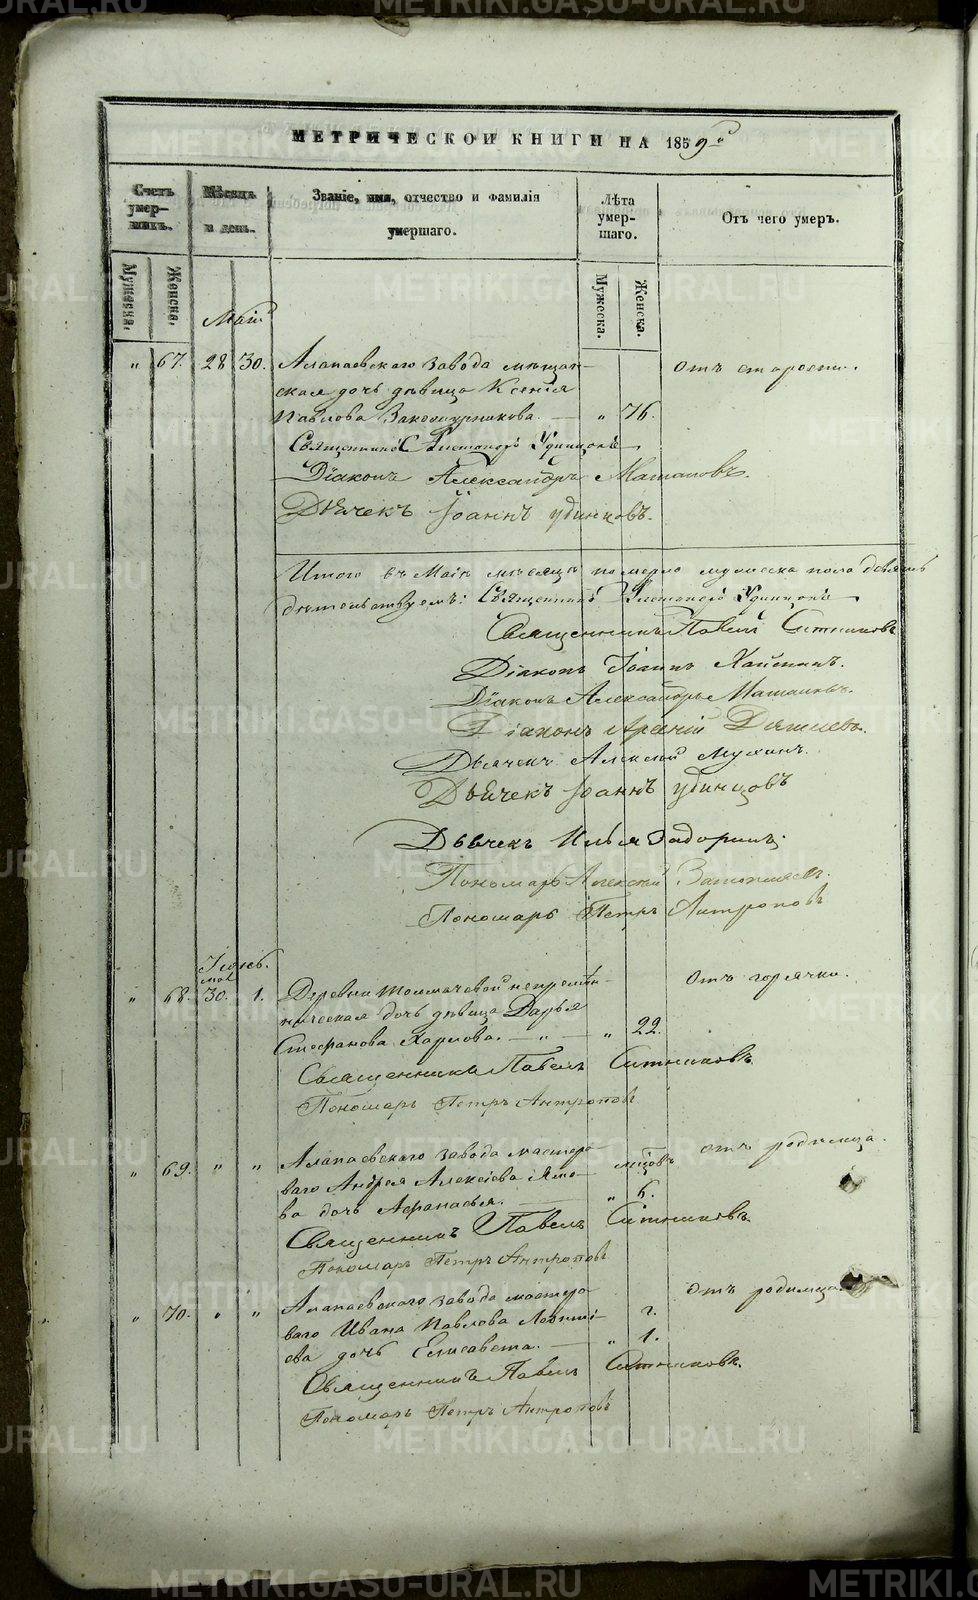 МЕТРИЧЕСКОЙ КНИГИ НА 1859 го
Счетъ умершихъ.
Мѣсяцъ и день.
Званіе, имя, отчество и фамилія умершаго.
Лѣта умершаго.
Отъ чего умеръ.
Мужеска.
Женска.
Мужеска.
Женска.
Май
" 67. 28 30. Алапаевскаго завода мѣщан- отъ старости.
ская дочь дѣвица Ксенія
Павлова " 76.
Священникъ Александръ Удинцовъ
Діаконъ Александръ Маталовъ.
Дьячекъ Іоаннъ Удинцовъ.
Итого въ Маѣ мѣсяцѣ померло мужеска пола
Священникъ Александръ Удинцовъ
Священникъ Павелъ Ситниковъ
Діаконъ Іоаннъ
Діаконъ Александръ Маталовъ.
Діаконъ
Дьячекъ Алексій Мухинъ.
Дьячекъ Іоаннъ Удинцовъ
Дьячекъ Илья Задоринъ.
Пономарь Алексій
Пономарь Петръ Антроповъ
Іюнь.
мая
" 68. 30. 1. Деревни Толмачевой непремѣн- отъ горячки.
ническая дочь дѣвица Дарья
Стефанова Харлова. — " — " 22.
Священникъ Павелъ Ситниковъ
Пономарь Петръ Антроповъ
" 69. " " Алапаевскаго завода мастеро- мѣсцовъ отъ родимца.
ваго Андрея Алексѣева
ва дочь Афанасья. " 6.
Священникъ Павелъ Ситниковъ
Пономарь Петръ Антроповъ
" 70. " " Алапаевскаго завода мастеро- отъ родимца
ваго Ивана Павлова Леонтi- г.
ева дочь Елисавета. " 1.
Священникъ Павелъ Ситниковъ.
Пономарь Петръ Антроповъ
METRIKI.GASO-URAL.RU